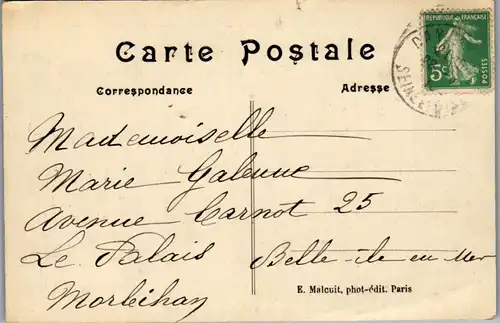 Carte Postale
RÉPUBLIQUE FRANÇAISE
5c POSTES
Correspondance
Adresse
Mademoiselle
Marie Galenne
Avenue Carnot 25
Le Palais
Belle-ile en Mer
Morbihan
E. Malcuit, phot-édit. Paris